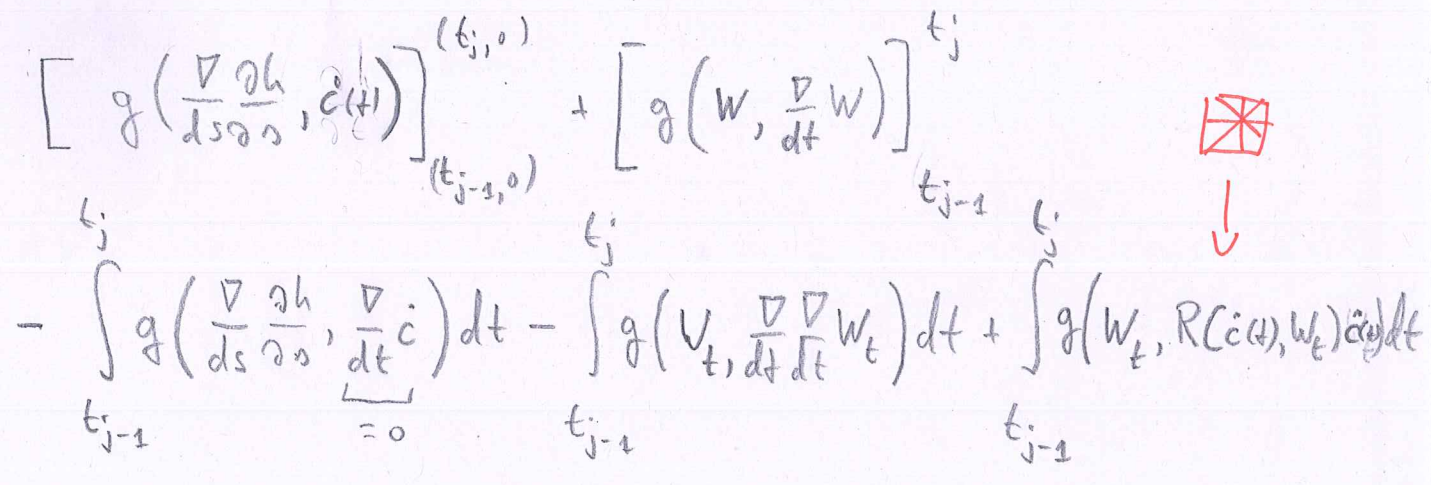 [ g ( ∇/ds ∂h/∂s , ċ(t) ) ]_{(t_{j-1},0)}^{(t_j,0)} + [ g ( W, ∇/dt W ) ]_{t_{j-1}}^{t_j}
- ∫_{t_{j-1}}^{t_j} g ( ∇/ds ∂h/∂s , ∇/dt ċ ) dt - ∫_{t_{j-1}}^{t_j} g ( W_t , ∇/dt ∇/dt W_t ) dt + ∫_{t_{j-1}}^{t_j} g ( W_t , R(ċ(t), W_t) ċ(t) ) dt
= 0